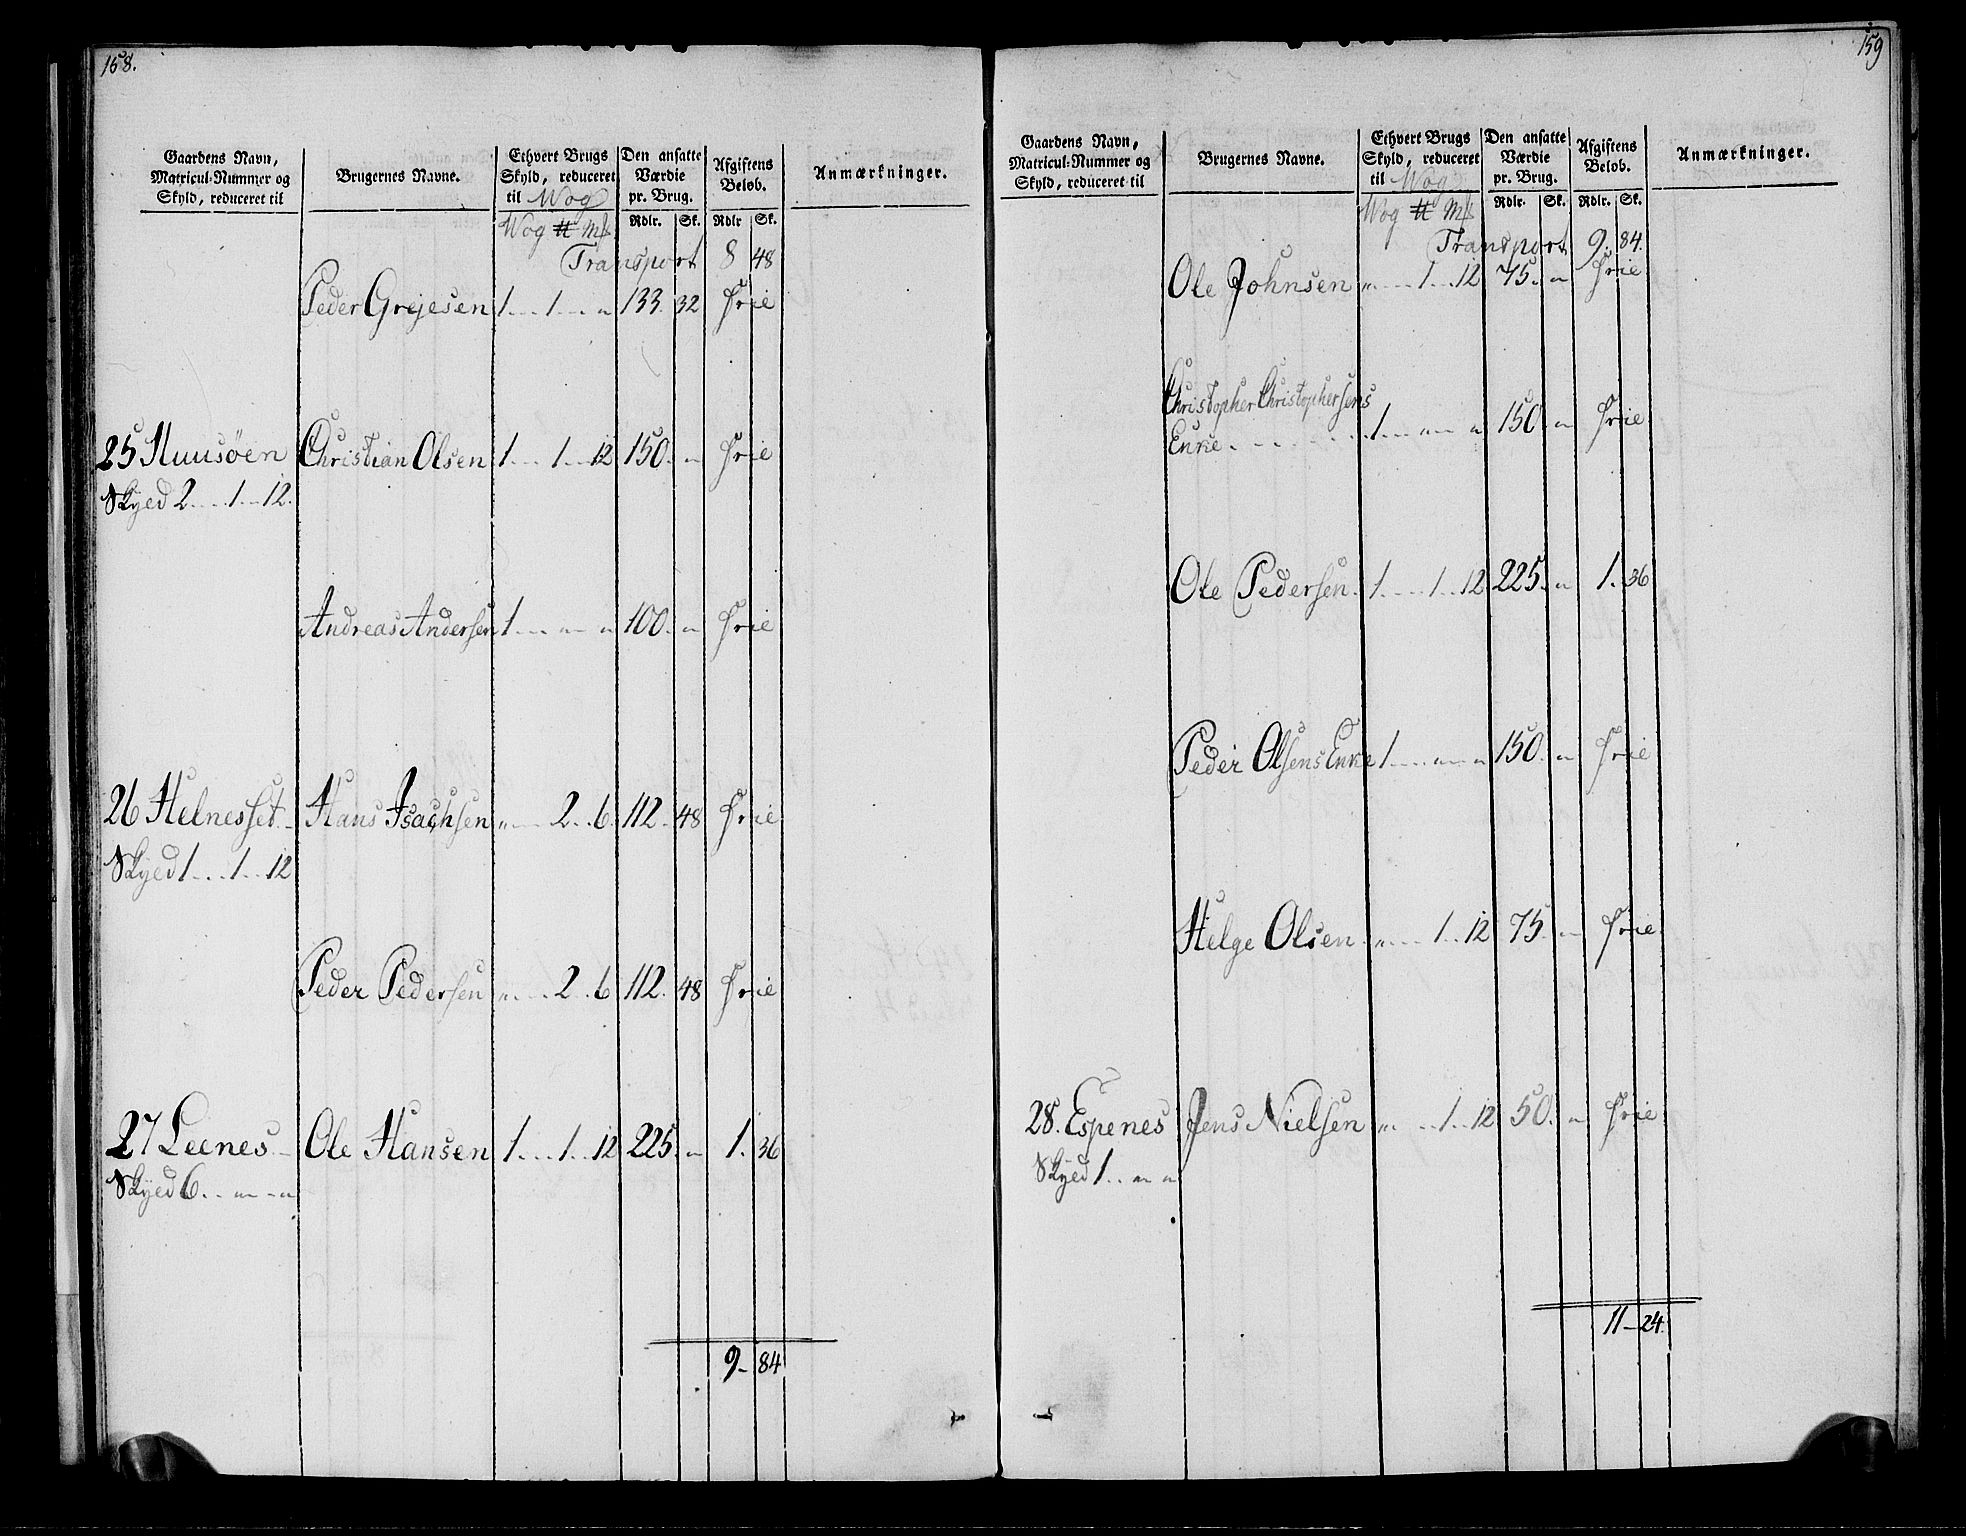 158.
Gaardens Navn, Matricul-Nummer og Skyld, reduceret til
Brugernes Navne.
Ethvert Brugs Skyld, reduceret til Wog
Den ansatte Værdie pr. Brug.
Afgiftens Beløb.
Anmærkninger.
Wog ℔ Mk Rdlr. Sk. Rdlr Sk.
Transport 8 48
Peder Grejesen 1 1 " 133. 32 Frie
25 Huusöen Christian Olsen 1 1 12 150. " Frie
Skyed 2 1 12.
Andreas Andersen 1 " " 100. " Frie
26 Helnesset Hans Isachsen " 2 6. 112. 48 Frie
Skyed 1 1 12
Peder Pedersen " 2 6 112. 48 Frie
27 Leenes Ole Hansen 1 1 12 225. " 1. 36
Skyed 6 " "
9 84
159
Gaardens Navn, Matricul-Nummer og Skyld, reduceret til
Brugernes Navne.
Ethvert Brugs Skyld, reduceret til Wog
Den ansatte Værdie pr. Brug.
Afgiftens Beløb.
Anmærkninger.
Wog ℔ Mk Rdlr. Sk. Rdlr. Sk.
Transport 9. 84.
Ole Johnsen " 1 12 75. " Frie
Christopher Christophersens
Enke 1 " " 150. " Frie
Ole Pedersen. 1 1 12 225. " 1. 36
Peder Olsens Enke 1 " " 150. " Frie
Helge Olsen " 1 12 75. " Frie
28. Espenes Jens Nielsen " 1 12 50. " Frie
Skyed 1 " "
11 24.